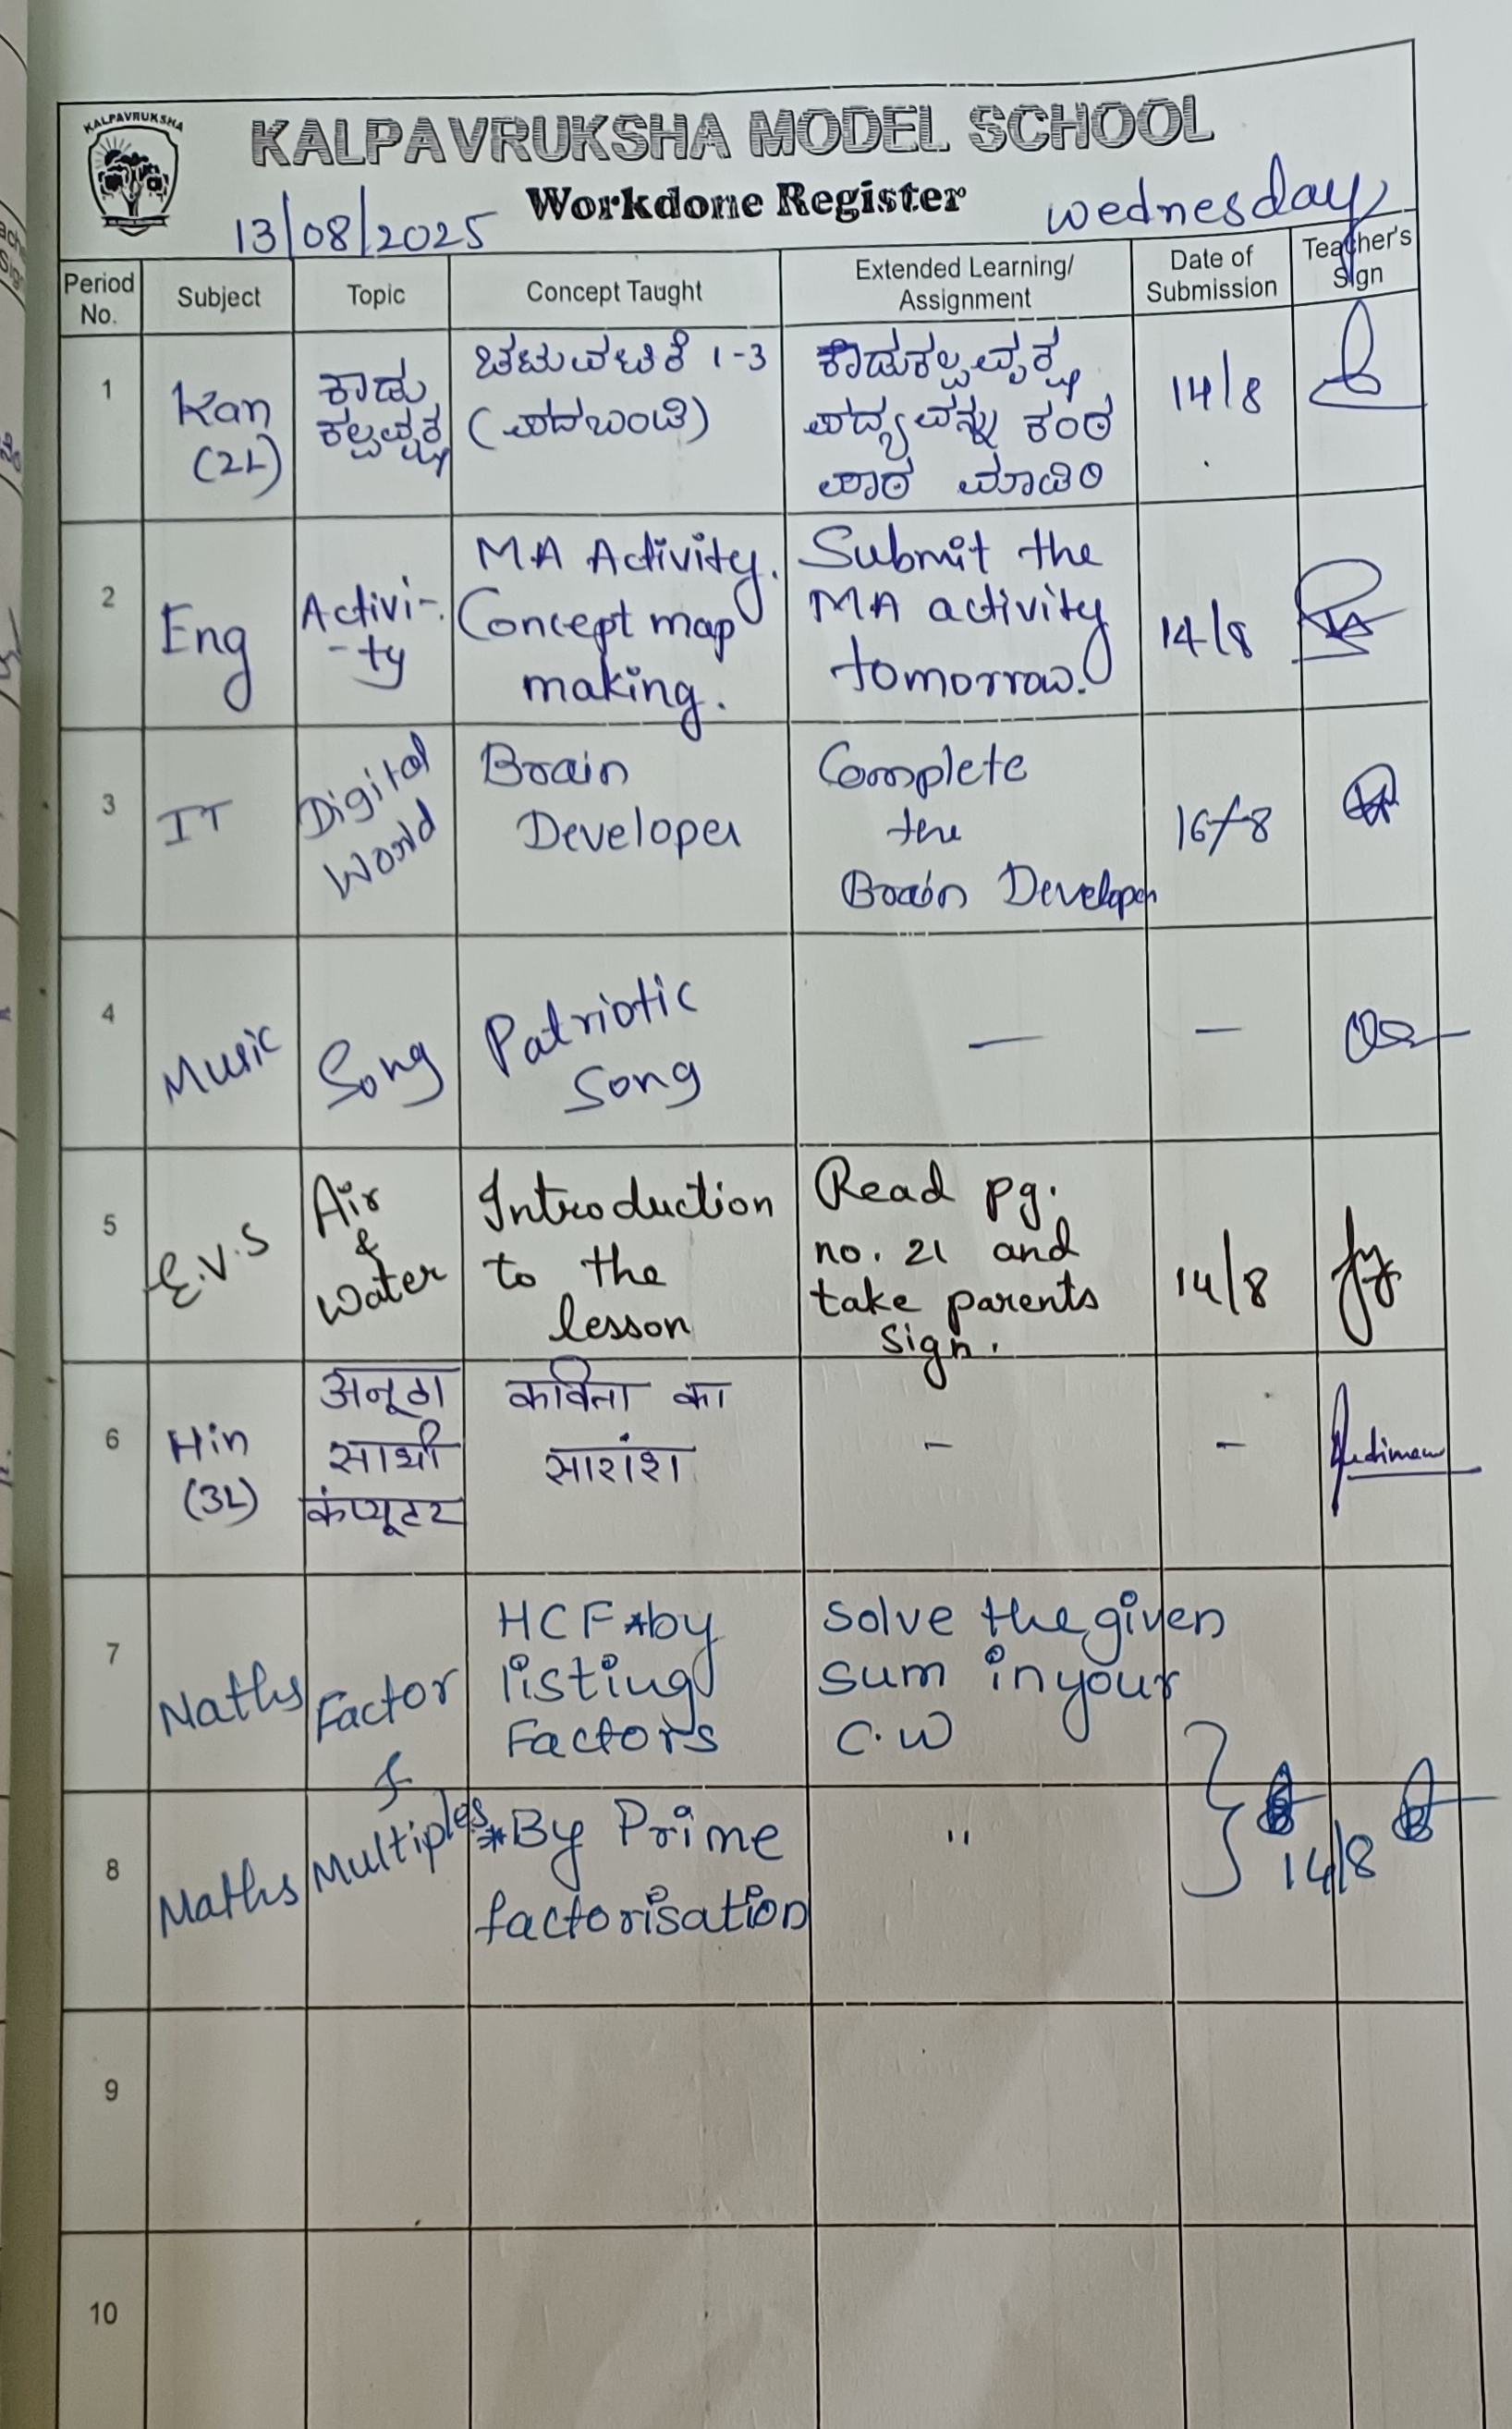 KALPAVRUKSHA
KALPAVRUKSHA MODEL SCHOOL
Workdone Register
13/08/2025
Wednesday
Period No.
Subject
Topic
Concept Taught
Extended Learning/
Assignment
Date of
Submission
Teacher's
Sign
1
Kan
(2L)
ಕಾಡು
ಕಲ್ಪವೃಕ್ಷ
ಚಟುವಟಿಕೆ 1-3
(ಪದಬಂಡಿ)
ಕಾಡುಕಲ್ಪವೃಕ್ಷ
ಪದ್ಯವನ್ನು ಕಂಠ
ಪಾಠ ಮಾಡಿರಿ
14/8
2
Eng
Activi-
-ty
MA Activity.
Concept map
making.
Submit the
MA activity
tomorrow.
14/8
3
IT
Digital
World
Brain
Developer
Complete
the
Brain Developer
16/8
4
Music
Song
Patriotic
Song
—
—
5
E.V.S
Air
&
Water
Introduction
to the
lesson
Read pg.
no. 21 and
take parents
sign.
14/8
6
Hin
(3L)
अनूठा
साथी
कंप्यूटर
कविता का
सारांश
-
-
7
Maths
Factor
&
HCF *by
listing
Factors
Solve the given
sum in your
C.W
8
Maths
Multiples
*By Prime
factorisation
"
14/8
9
10